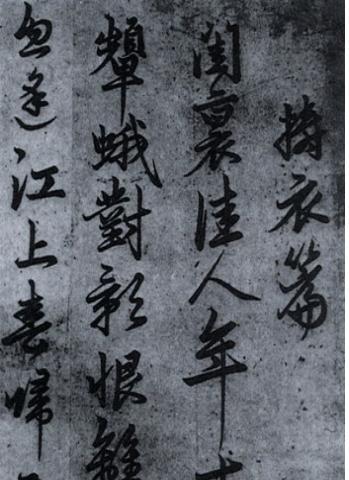 擣衣篇
閨裏佳人年
顰蛾對影恨離
忽逢江上春歸